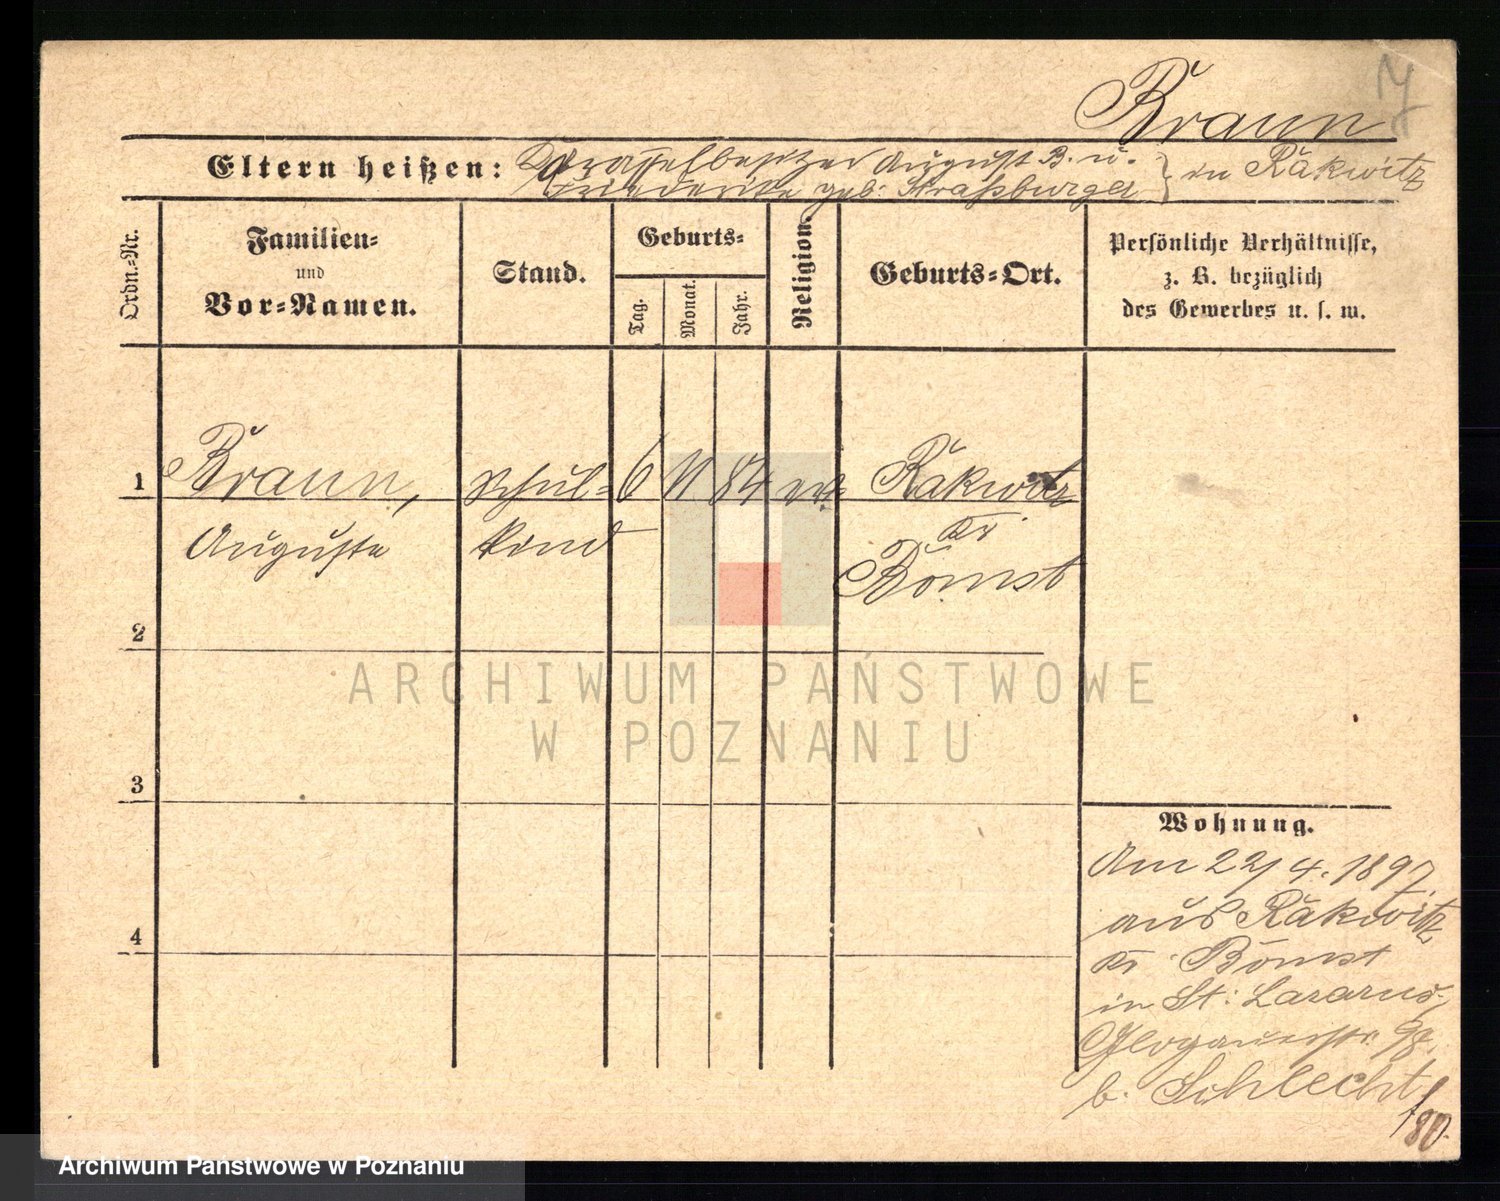 7
Braun
Eltern heißen: August B. u.
Friederike geb. Straßburger } in Rakwitz
Ordn.-Nr.
Familien-
und
Vor-Namen.
Stand.
Geburts-
Tag.
Monat.
Jahr.
Religion.
Geburts-Ort.
Persönliche Verhältnisse,
z. B. bezüglich
des Gewerbes u. s. w.
1 Braun, Schul- 6 11 84 ev. Rakwitz
Auguste kind Kr.
Bomst
2
3
4
Wohnung.
Am 22/4. 1897
aus Rakwitz
Kr. Bomst
in St. Lazarus,
Glogauerstr. 98.
b. Schlecht
180.
ARCHIWUM PAŃSTWOWE
W POZNANIU
Archiwum Państwowe w Poznaniu